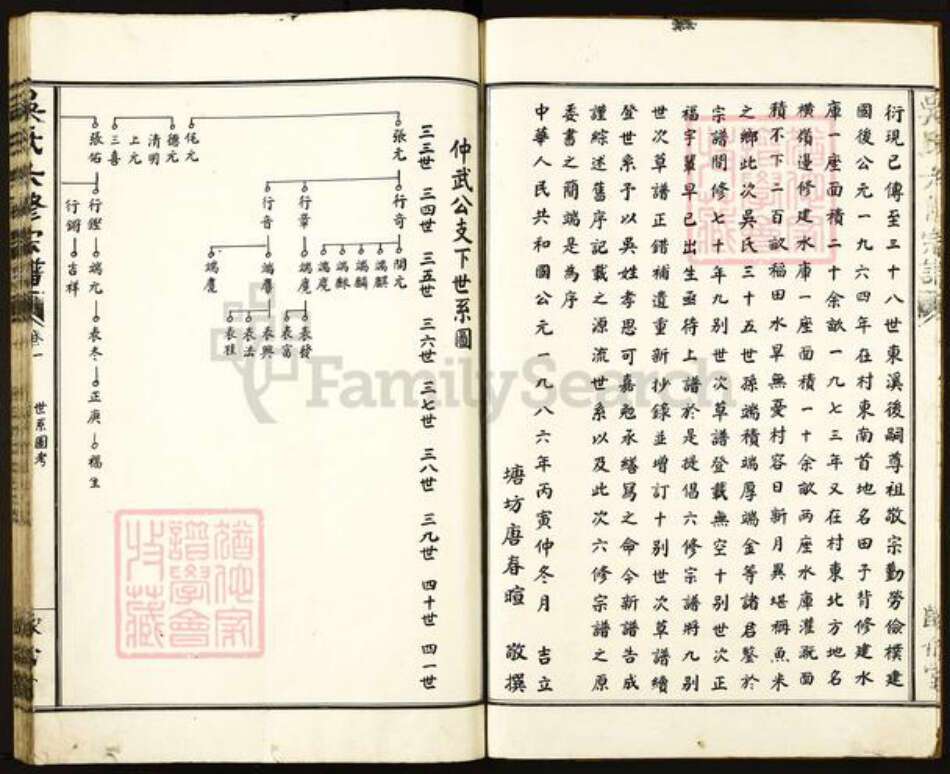 衍現已傳至三十八世東溪後嗣尊祖敬宗勤勞儉樸建
國後公元一九六四年在村東南首地名田子背修建水
庫一座面積二十余畝一九七三年又在村東北方地名
橫嶺邊修建水庫一座面積一十余畝兩座水庫灌溉面
積不下二百畝稻田水旱無憂村容日新月異堪稱魚米
之鄉此次吳氏三十五世孫端積端厚端金等諸君鑒於
宗譜間修七十年九別世次草譜登載無空十別世次正
福字輩早已出生亟待上譜於是提倡六修宗譜將九別
世次草譜正錯補遺重新抄錄並增訂十別世次草譜續
登世系予以吳姓孝思可嘉勉承繕寫之命今新譜告成
謹綜述舊序記載之源流世系以及此次六修宗譜之原
委書之簡端是為序
中華人民共和國公元一九八六年丙寅仲冬月 吉立
塘坊唐春暄 敬撰
仲武公支下世系圖
三三世 三四世 三五世 三六世 三七世 三八世 三九世 四十世 四一世
張元 行奇 開元
端麒
端麟
端
端
行章 端 表發
表富
行音 端 表興
表法
表程
端
任元
德元
清明
上元
三喜
張佑 行鏗 端九 表冬 正庚 楊生
行鏘 吉祥
吳氏六修宗譜 卷一 世系圖考
FamilySearch